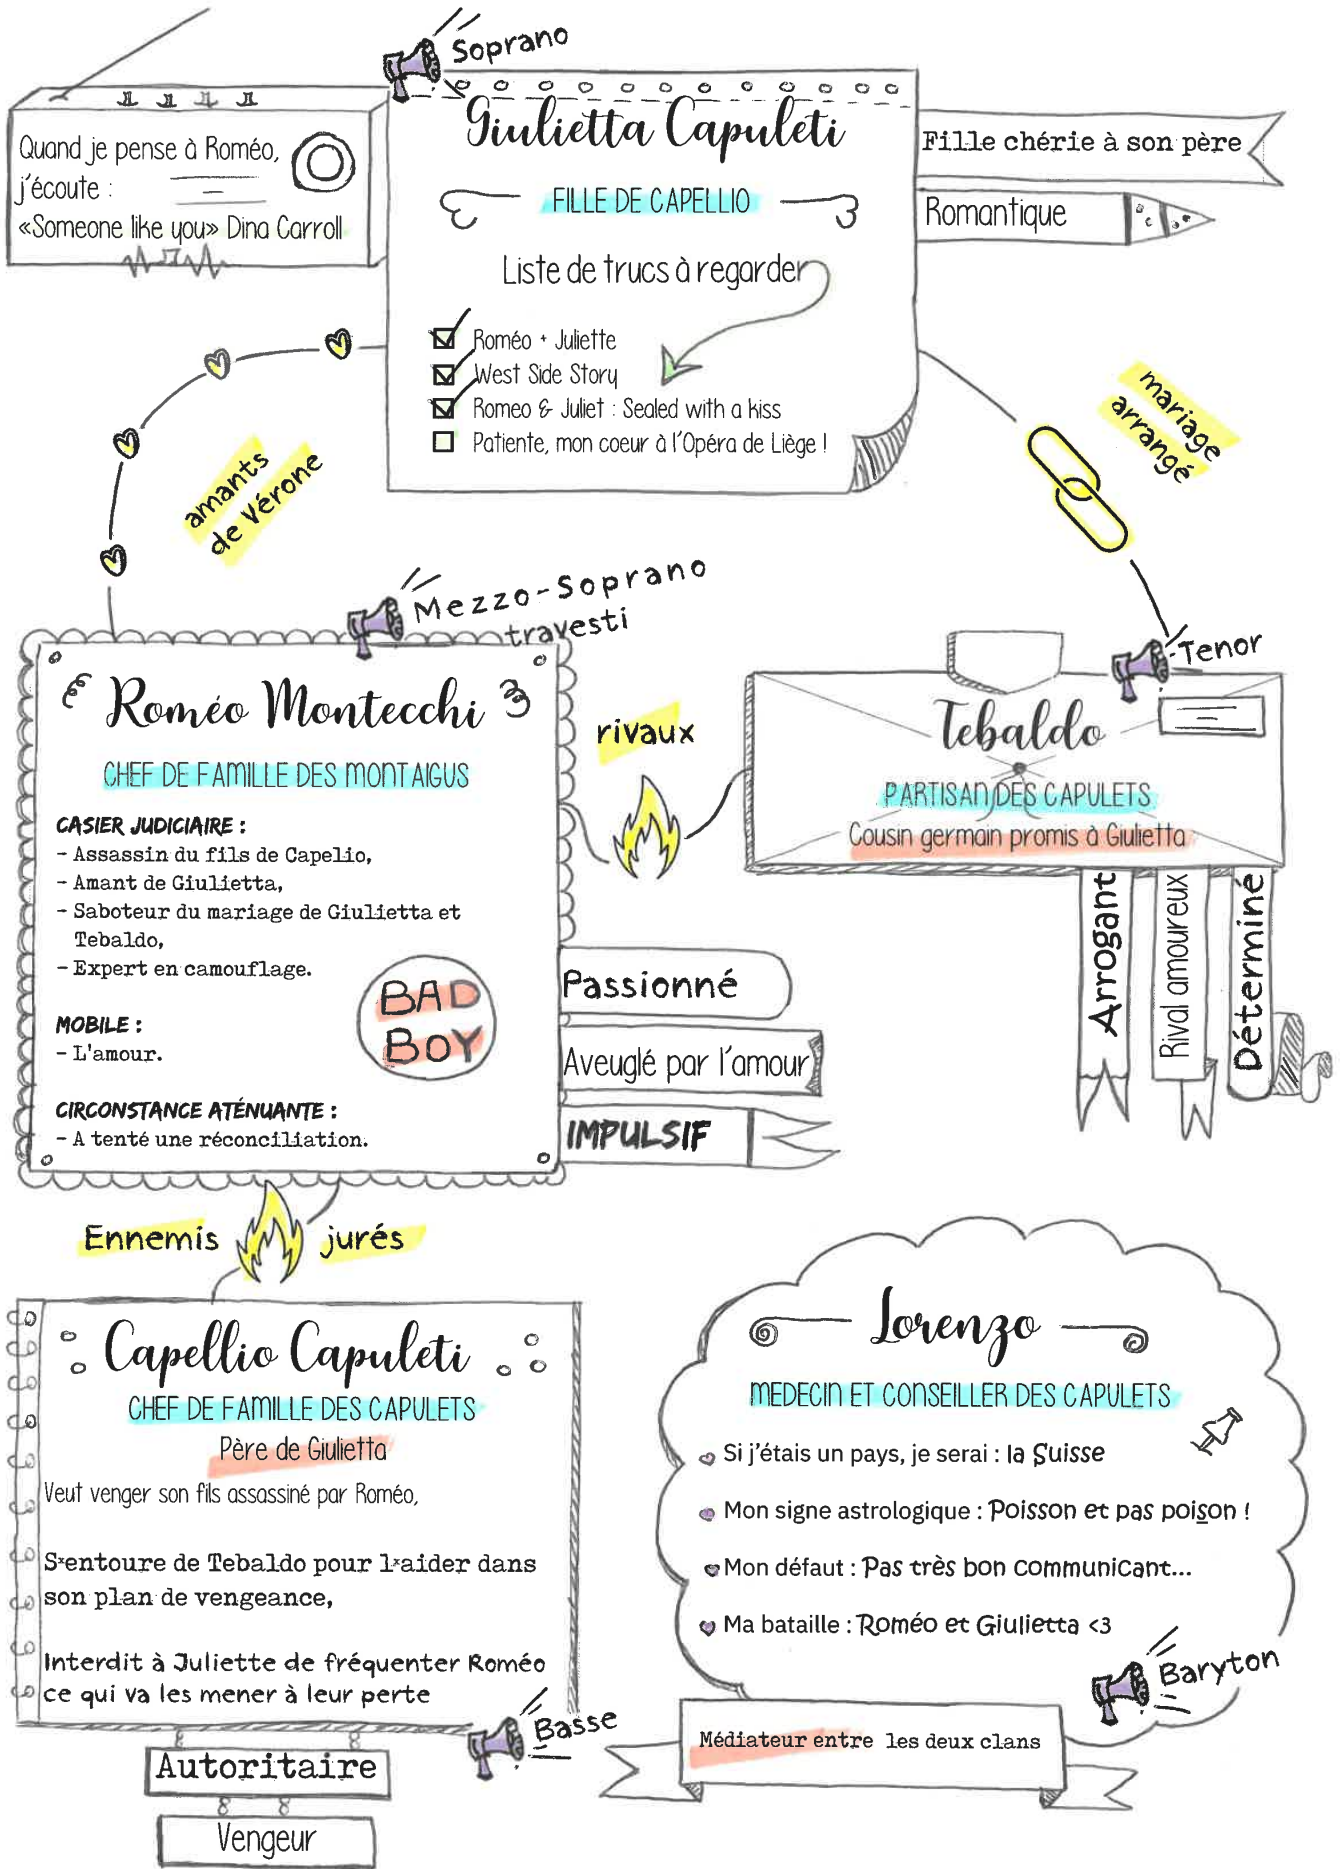 Soprano
Giulietta Capuleti
FILLE DE CAPELLIO
Quand je pense à Roméo,
j'écoute :
«Someone like you» Dina Carroll
Fille chérie à son père
Romantique
Liste de trucs à regarder
Roméo + Juliette
West Side Story
Romeo & Juliet : Sealed with a kiss
Patiente, mon coeur à l'Opéra de Liège !
amants
de Vérone
mariage
arrangé
Mezzo-Soprano
travesti
Roméo Montecchi
CHEF DE FAMILLE DES MONTAIGUS
CASIER JUDICIAIRE :
- Assassin du fils de Capelio,
- Amant de Giulietta,
- Saboteur du mariage de Giulietta et
Tebaldo,
- Expert en camouflage.
BAD
BOY
MOBILE :
- L'amour.
CIRCONSTANCE ATÉNUANTE :
- A tenté une réconciliation.
Passionné
Aveuglé par l'amour
IMPULSIF
rivaux
Tenor
Tebaldo
PARTISAN DES CAPULETS
Cousin germain promis à Giulietta
Arrogant
Rival amoureux
Déterminé
Ennemis jurés
Capellio Capuleti
CHEF DE FAMILLE DES CAPULETS
Père de Giulietta
Veut venger son fils assassiné par Roméo,
S*entoure de Tebaldo pour l*aider dans
son plan de vengeance,
Interdit à Juliette de fréquenter Roméo
ce qui va les mener à leur perte
Basse
Autoritaire
Vengeur
Lorenzo
MEDECIN ET CONSEILLER DES CAPULETS
Si j'étais un pays, je serai : la Suisse
Mon signe astrologique : Poisson et pas poison !
Mon défaut : Pas très bon communicant...
Ma bataille : Roméo et Giulietta <3
Baryton
Médiateur entre les deux clans